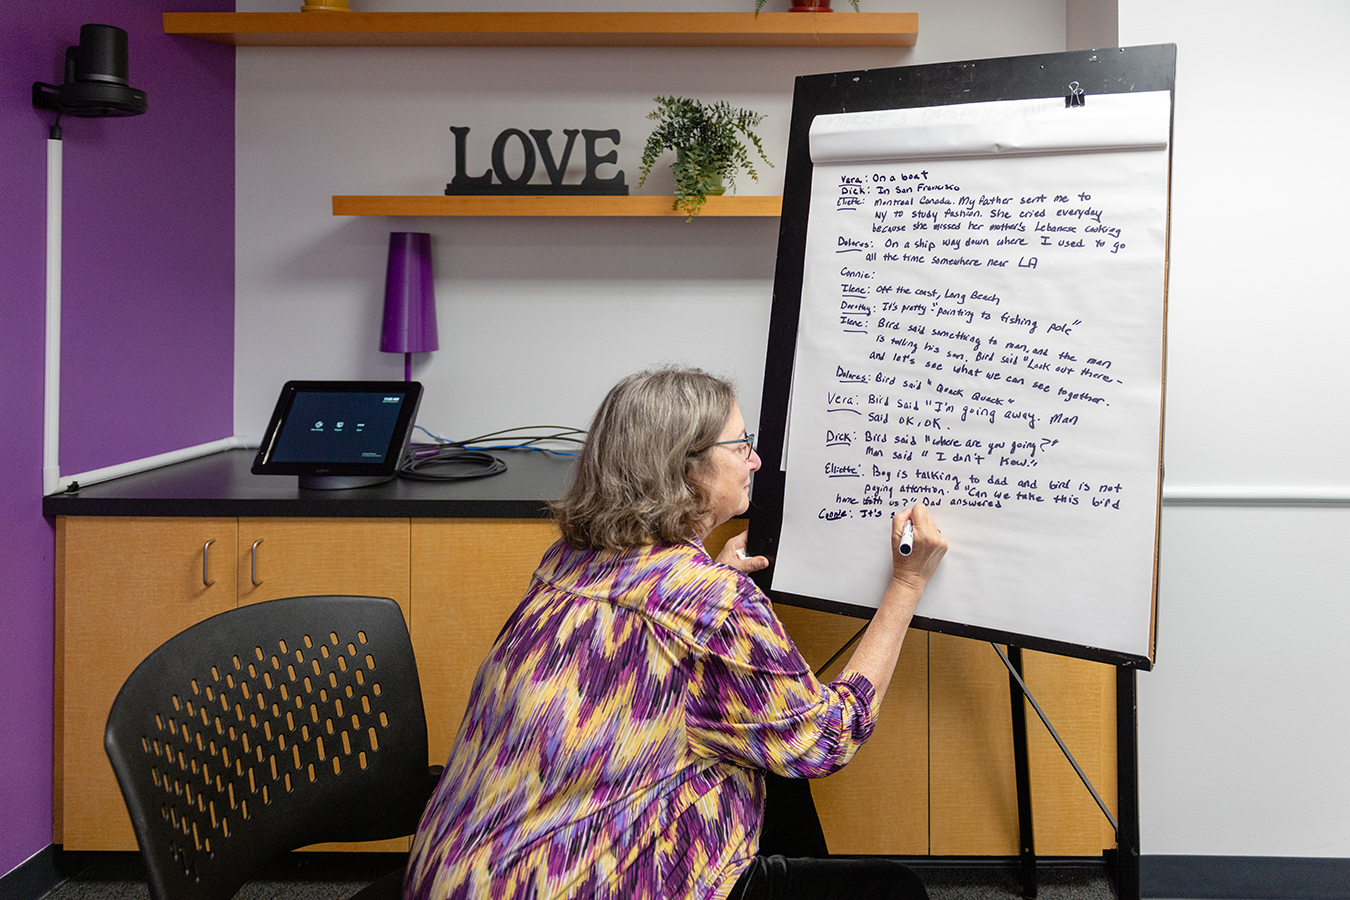 LOVE
Vera: On a boat
Dick: In San Francisco
Elliette: Montreal Canada. My father sent me to
NY to study fashion. She cried everyday
because she missed her mother's Lebanese cooking
Dolores: On a ship way down where I used to go
all the time somewhere near LA
Connie:
Ilene: Off the coast, Long Beach
Dorothy: It's pretty "pointing to fishing pole"
Ilene: Bird said something to man, and the man
is telling his son. Bird said "Look out there -
and let's see what we can see together.
Dolores: Bird said "Quack Quack"
Vera: Bird said "I'm going away. Man
said OK, OK.
Dick: Bird said "where are you going?"
Man said "I don't know."
Elliette: Boy is talking to dad and bird is not
paying attention. "Can we take this bird
home with us?" Dad answered
Connie: It's